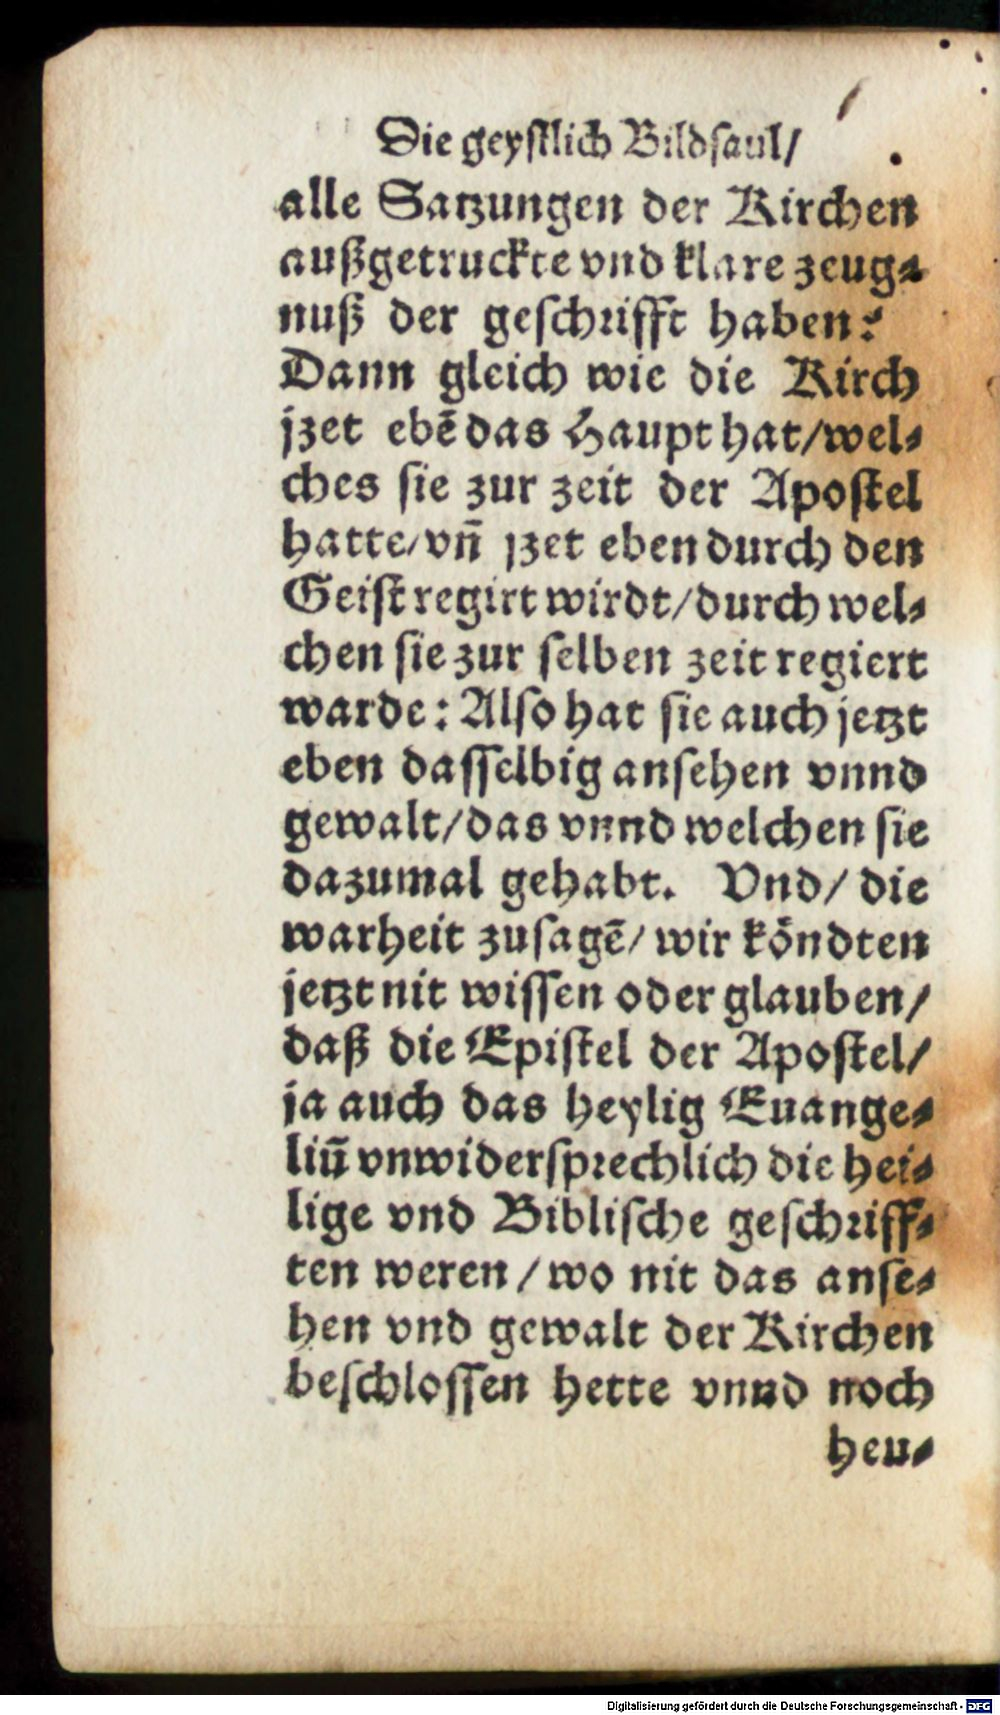 Die geystlich Bildsaul/
alle Satzungen der Kirchen
außgetruckte vnd klare zeug⸗
nuß der geschrifft haben?
Dann gleich wie die Kirch
jzet ebẽ das Haupt hat/wel⸗
ches sie zur zeit der Apostel
hatte/vñ jzet eben durch den
Geist regirt wirdt/durch wel⸗
chen sie zur selben zeit regiert
warde: Also hat sie auch jetzt
eben dasselbig ansehen vnnd
gewalt/das vnnd welchen sie
dazumal gehabt. Vnd/ die
warheit zusagẽ/ wir köndten
jetzt nit wissen oder glauben/
daß die Epistel der Apostel/
ja auch das heylig Euange⸗
liũ vnwidersprechlich die hei⸗
lige vnd Biblische geschriff⸗
ten weren/wo nit das anse⸗
hen vnd gewalt der Kirchen
beschlossen hette vnnd noch
heu⸗
Digitalisierung gefördert durch die Deutsche Forschungsgemeinschaft - DFG